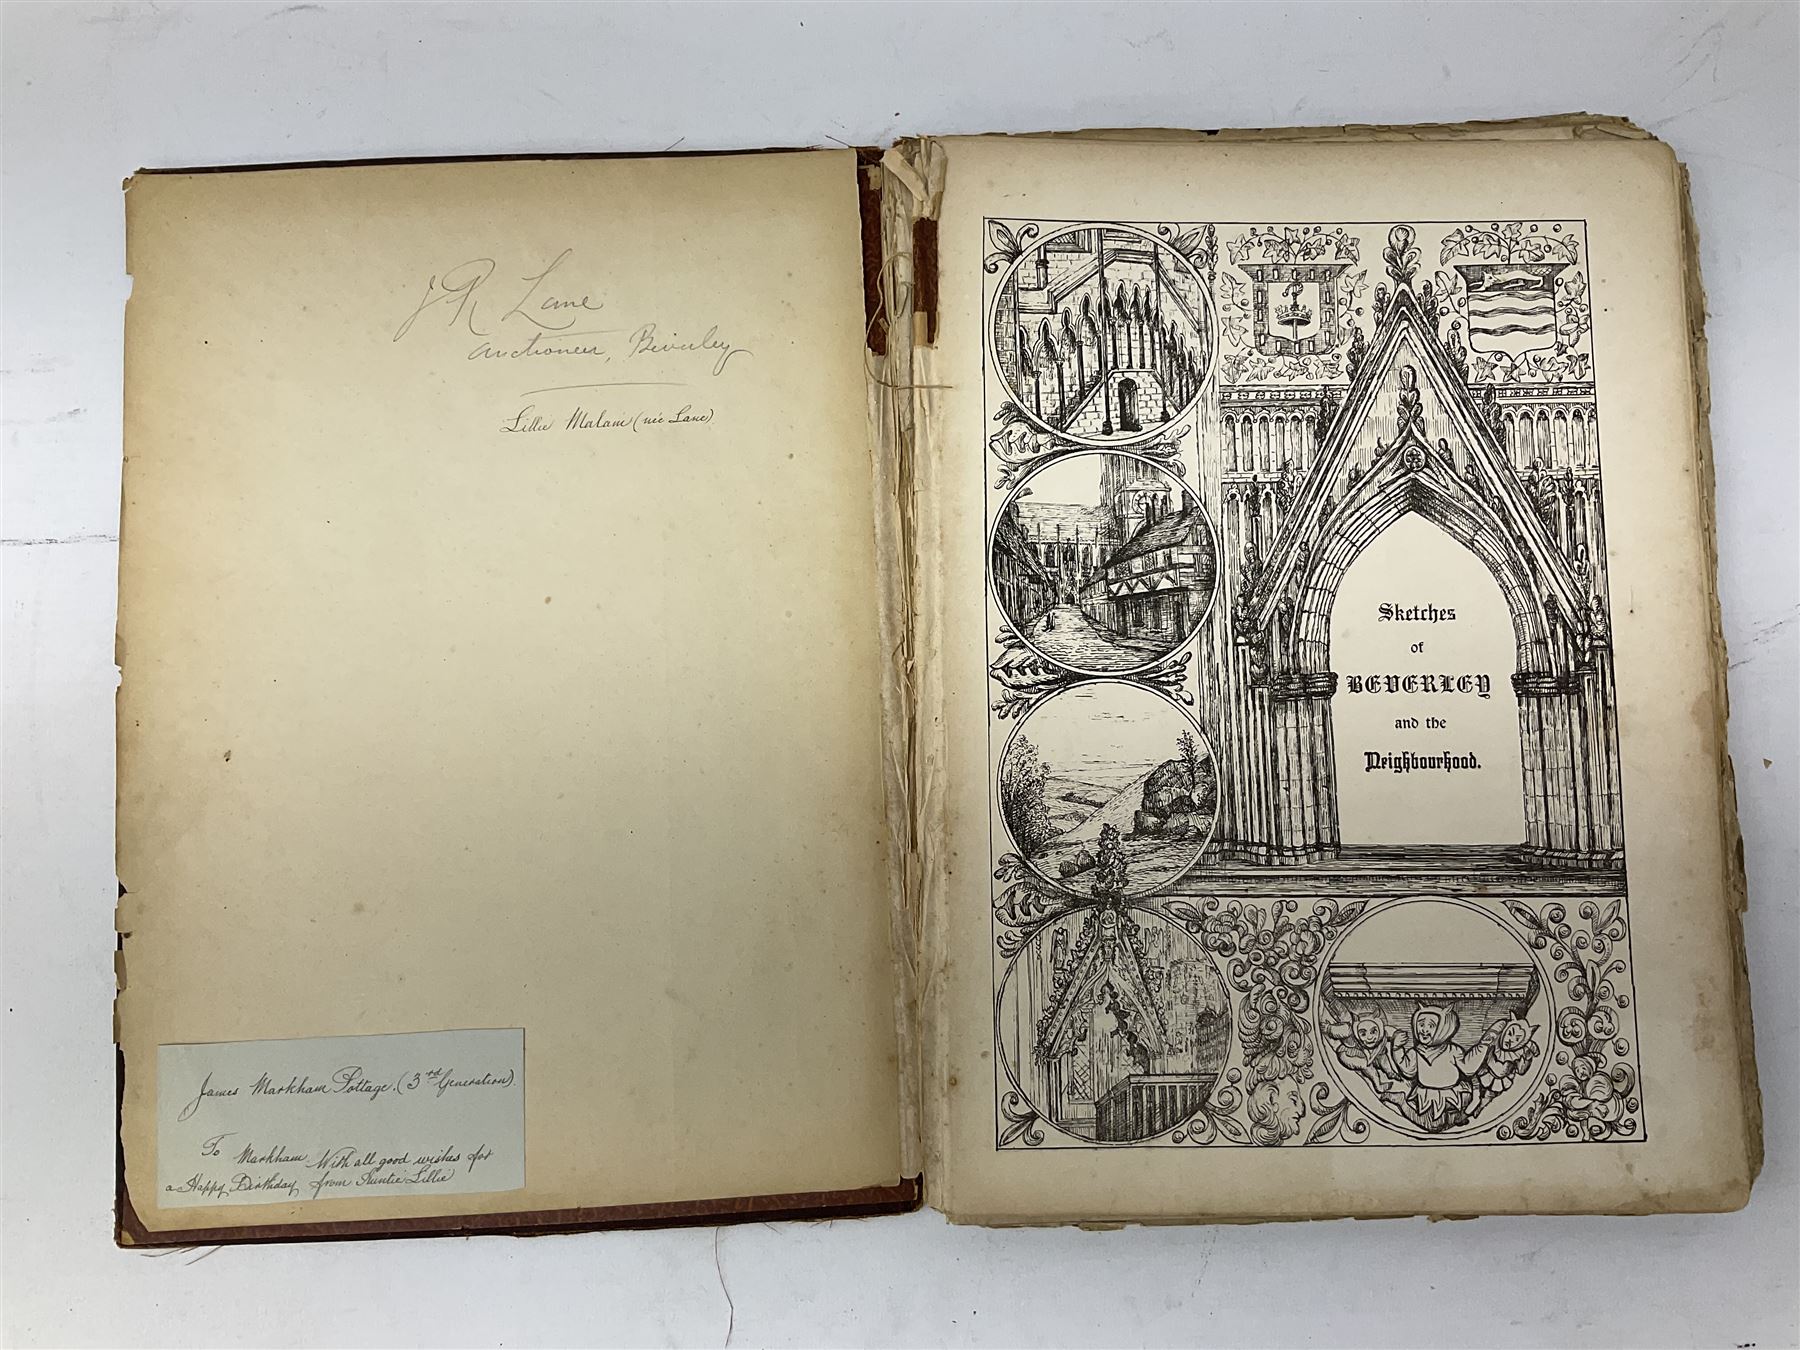 J R Lane
Auctioneer, Beverley
Lillie Malam (née Lane)
James Markham Pottage. (3rd Generation).
To Markham. With all good wishes for
a Happy Birthday from Auntie Lillie
Sketches
of
BEVERLEY
and the
Neighbourhood.